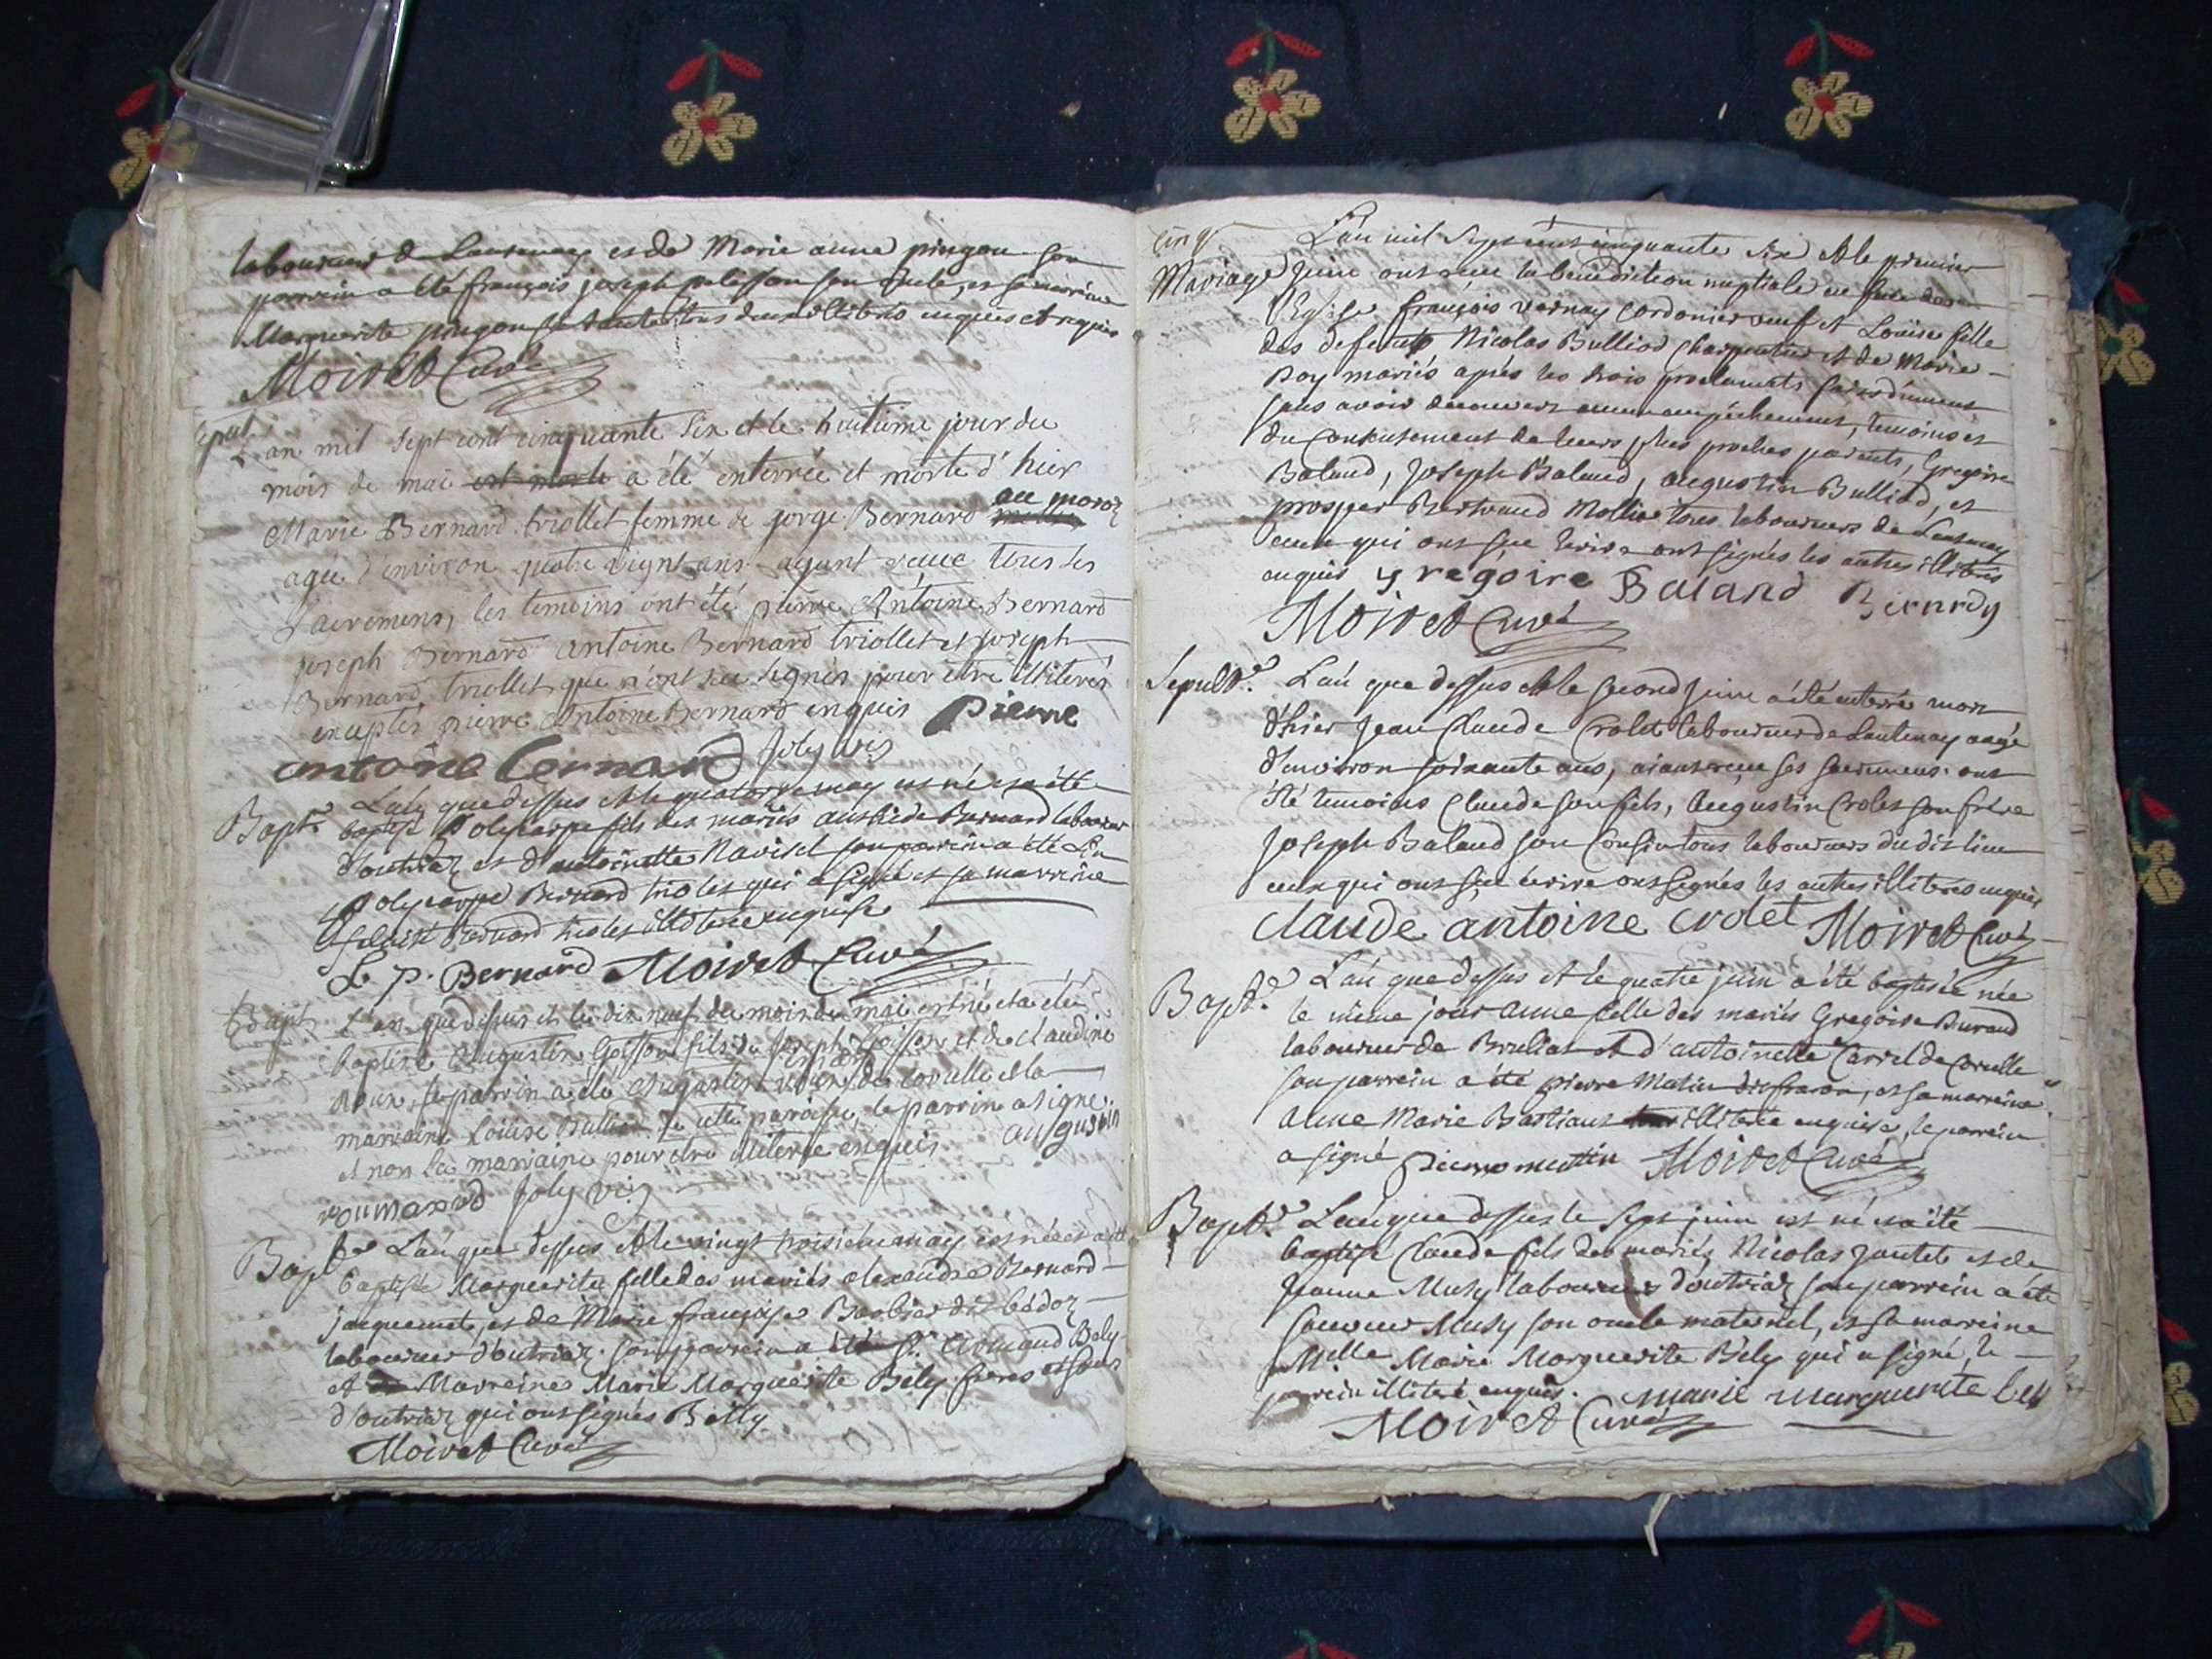 laboureur de Lantenay et de Marie anne pingon son
parrein a été françois joseph pelisson son oncle, et sa marreine
Marguerite pingon sa tante tous deux illitérés enquis et requis
Moiret Curé
Sepul
L'an mil sept cent cinquante six et le huitieme jour du
mois de mai est morte a été enterrée et morte d'hier
Marie Bernard triollet femme de jorge Bernard au moroz
agée d'environ quatre vignt ans ayant reçue tous les
Sacremens, les temoins ont été pierre Antoine Bernard
joseph Bernard antoine Bernard triollet et joseph
Bernard triollet que n'ont sçu signés pour etre illiterés
exceptés pierre Antoine Bernard enquis pierre
antoine bernard joly vic
Bapt.e L'an que dessus et le quatorze may est né et a été
baptisé polycarpe fils des mariés Bernard laboureur
d'outriaz et d'antoinette Navisel son parrein a été
polycarpe Bernard triolet qui a signé et sa marreine
Bernard triolet illiterée enquise
L. p. Bernard Moiret Curé
Bapt L'an que dessus et le dix neuf du mois de mai est né et a été
baptisé Augustin Goisson fils de Joseph Goisson et de claudine
roux, le parrin a été Augustin de corcelle et la
marraine Louise Bulliod de cette paroisse, le parrin a signé
et non la marraine pour etre illiterée enquis augustin
joly vic
Bapt.e L'an que dessus et le vingt troisieme may est née et a été
baptisée Marguerite fille des mariés alexandre Bernard
jacquemet, et de Marie françoise Barbier dit bédoz
laboureur d'outriaz son parrein a été Sr. armand Bely
et Marreine Marie Marguerite Bely freres et sœurs
d'outriaz qui ont signés Belly
Moiret Curé
cinq
L'an mil sept cent cinquante six et le premier
Mariage juin ont reçu la benediction nuptiale en face de
l'Eglise françois vernay Cordonier veuf et Loüise fille
des defunts Nicolas Bulliod charpentier et de Marie
Roy mariés après les trois proclamats faits dûment
sans avoir decouvert aucun empêchement, temoins et
du consentement de leurs plus proches parents, Gregoire
Baland, Joseph Baland, augustin Bulliod, et
prosper Bertrand Mollie tous laboureurs de Lantenay
ceux qui ont sçu ecrire ont signés les autres illiterés
enquis gregoire Baland Bernard
Moiret Curé
Sepult.e L'an que dessus et le second juin a été enterré mort
d'hier Jean Claude Crolet laboureur de Lantenay agé
d'environ soixante ans, aiant reçu ses sacremens. ont
été temoins Claude son fils, Augustin Crolet son frère
Joseph Baland son Cousin tous laboureurs du dit lieu
ceux qui ont sçu écrire ont signés les autres illiterés enquis
claude antoine crolet Moiret Curé
Bapt.e L'an que dessus et le quatre juin a été baptisée née
le même jour anne fille des mariés Gregoire Durand
laboureur de Brulias et d'antoinette Carrel de Corcelle
son parrein a été pierre Matin, et sa marreine
anne Marie Bastiant illiterée enquise, le parrein
a signé pierre mattin Moiret Curé
Bapt.e L'an que dessus le sept juin est né et a été
baptisé Claude fils des mariés Nicolas jantet et de
jeanne Musy laboureurs d'outriaz son parrein a été
Musy son oncle maternel, et sa marreine
Melle Marie Marguerite Bély qui a signé, le
parrein illitéré enquis. marie marguerite bely
Moiret Curé